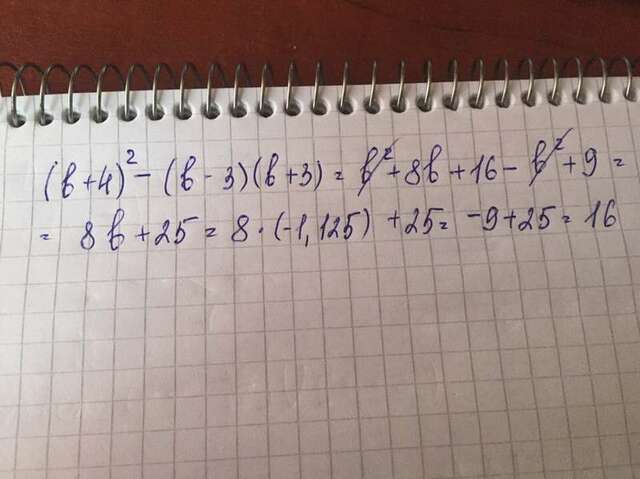 (b+4)² - (b-3)(b+3) = b² + 8b + 16 - b² + 9 =
= 8b + 25 = 8 · (-1,125) + 25 = -9 + 25 = 16